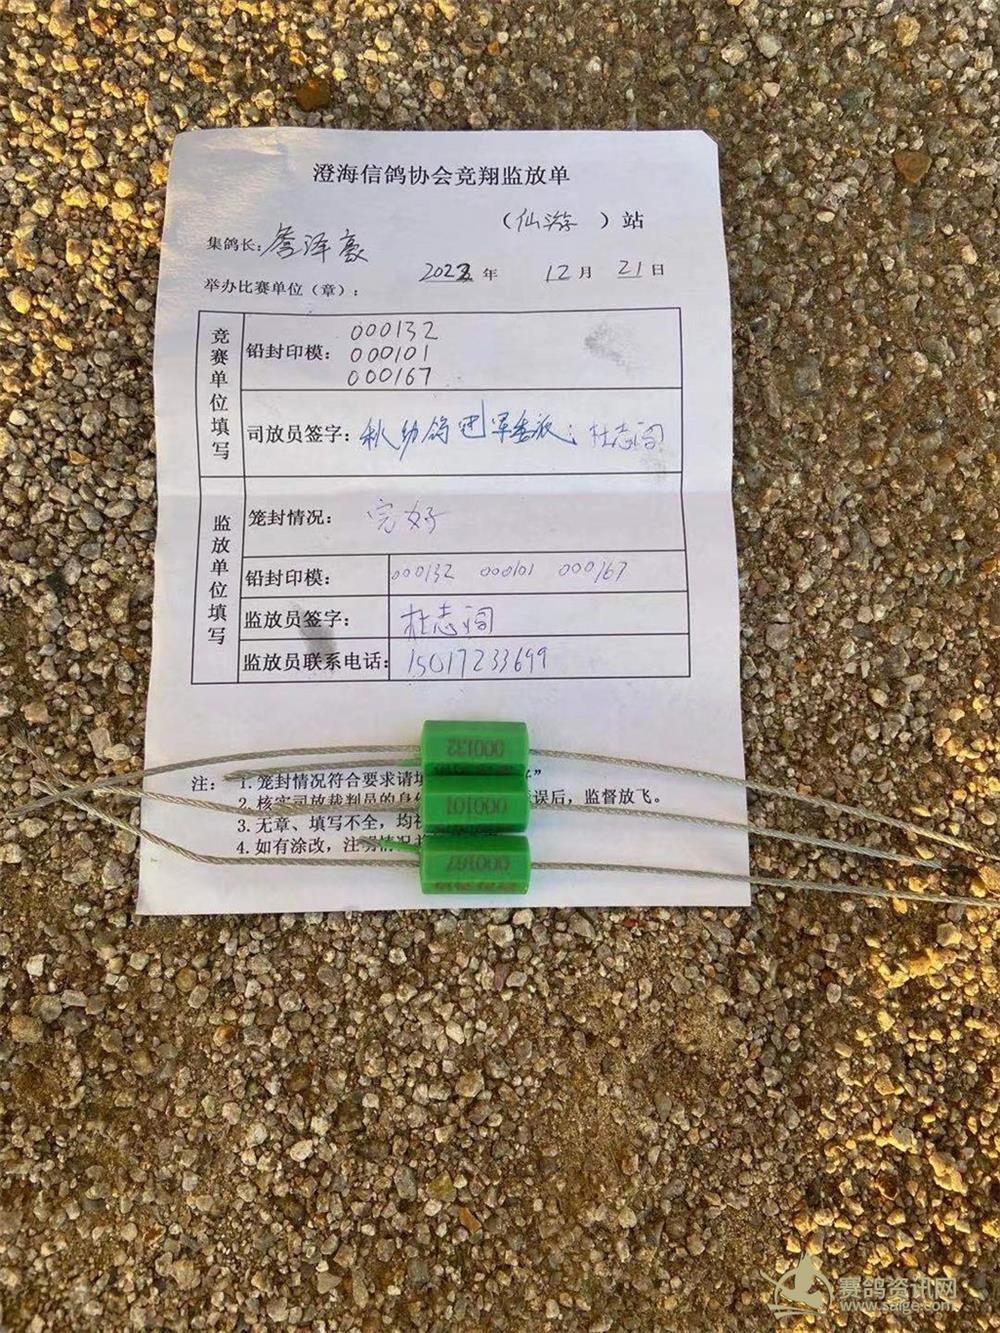 澄海信鸽协会竞翔监放单
（仙游 ）站
集鸽长：詹泽豪
2023 年 12 月 21 日
举办比赛单位（章）：
竞赛单位填写
铅封印模：
000132
000101
000167
司放员签字：秋幼鸽 杜志
监放单位填写
笼封情况： 完好
铅封印模： 000132 000101 000167
监放员签字： 杜志
监放员联系电话： 15017233699
000132
000101
000167
注： 1.笼封情况符合要求请填
2.核实司放裁判员的身 误后，监督放飞。
3.无章、填写不全，均
4.如有涂改，注明情况
赛鸽资讯网
www.saige.com